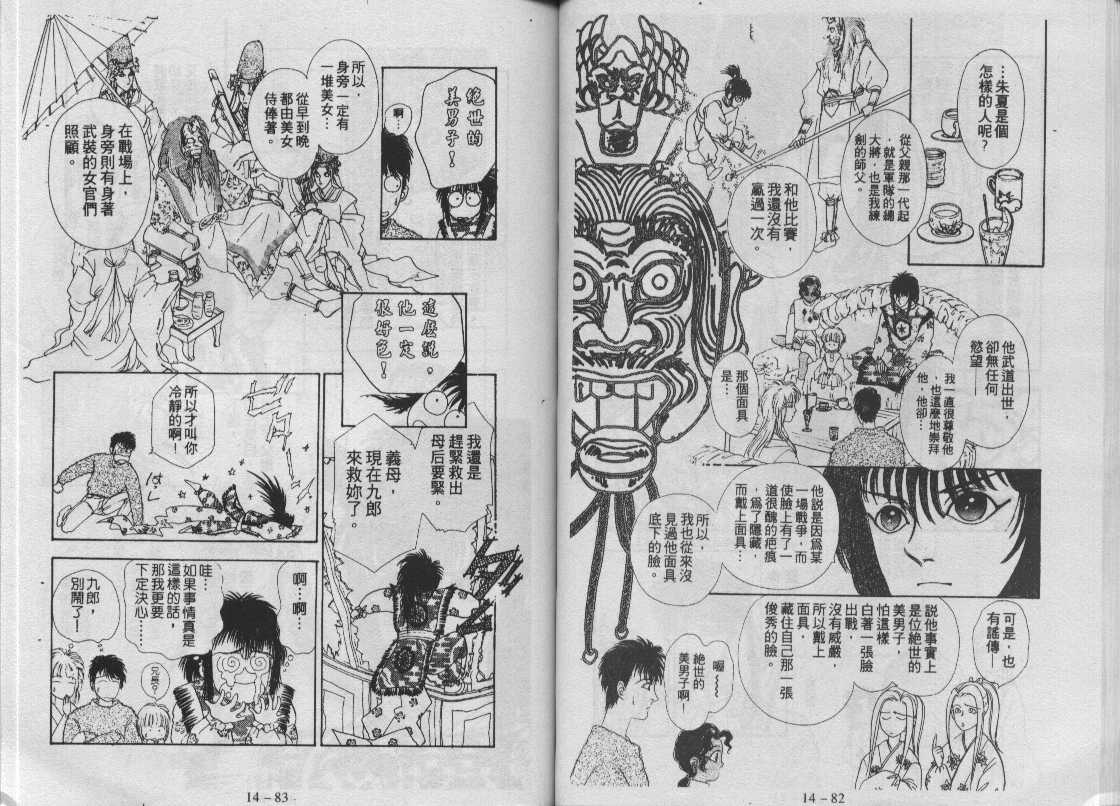 …朱夏是個
怎樣的人呢？
從父親那一代起
就是軍隊的總
大將，也是我練
劍的師父。
和他比賽，
我還沒有
贏過一次。
他武道出世，
卻無任何
慾望——
我一直很尊敬他
，也這麼地崇拜
他，他卻…
那個面具
是…
他說是因為某
一場戰爭，而
使臉上有了一
道很醜的疤痕
，為了隱藏，
而戴上面具…
所以，
我也從來沒
見過他面具
底下的臉。
可是，也
有謠傳—
說他事實上
是位絕世的
美男子，
怕這樣
白著一張臉
出戰，
沒有威嚴，
所以戴上
面具，
藏住自己那一張
俊秀的臉。
喔～～～
絕世的
美男子啊！
14－82
絕世的
美男子！
啊…
所以，
身旁一定有
一堆美女…
從早到晚
都由美女
侍俸著。
在戰場上，
身旁則有身著
武裝的女官們
照顧。
這麼說，
他一定
很好色！
我還是
趕緊救出
母后要緊。
義母，
現在九郎
來救妳了。
所以才叫你
冷靜的啊！
啊…啊…
哇…
如果事情真是
這樣的話，
那我更要
下定決心……
九郎，
別鬧了—
兄長？
14－83